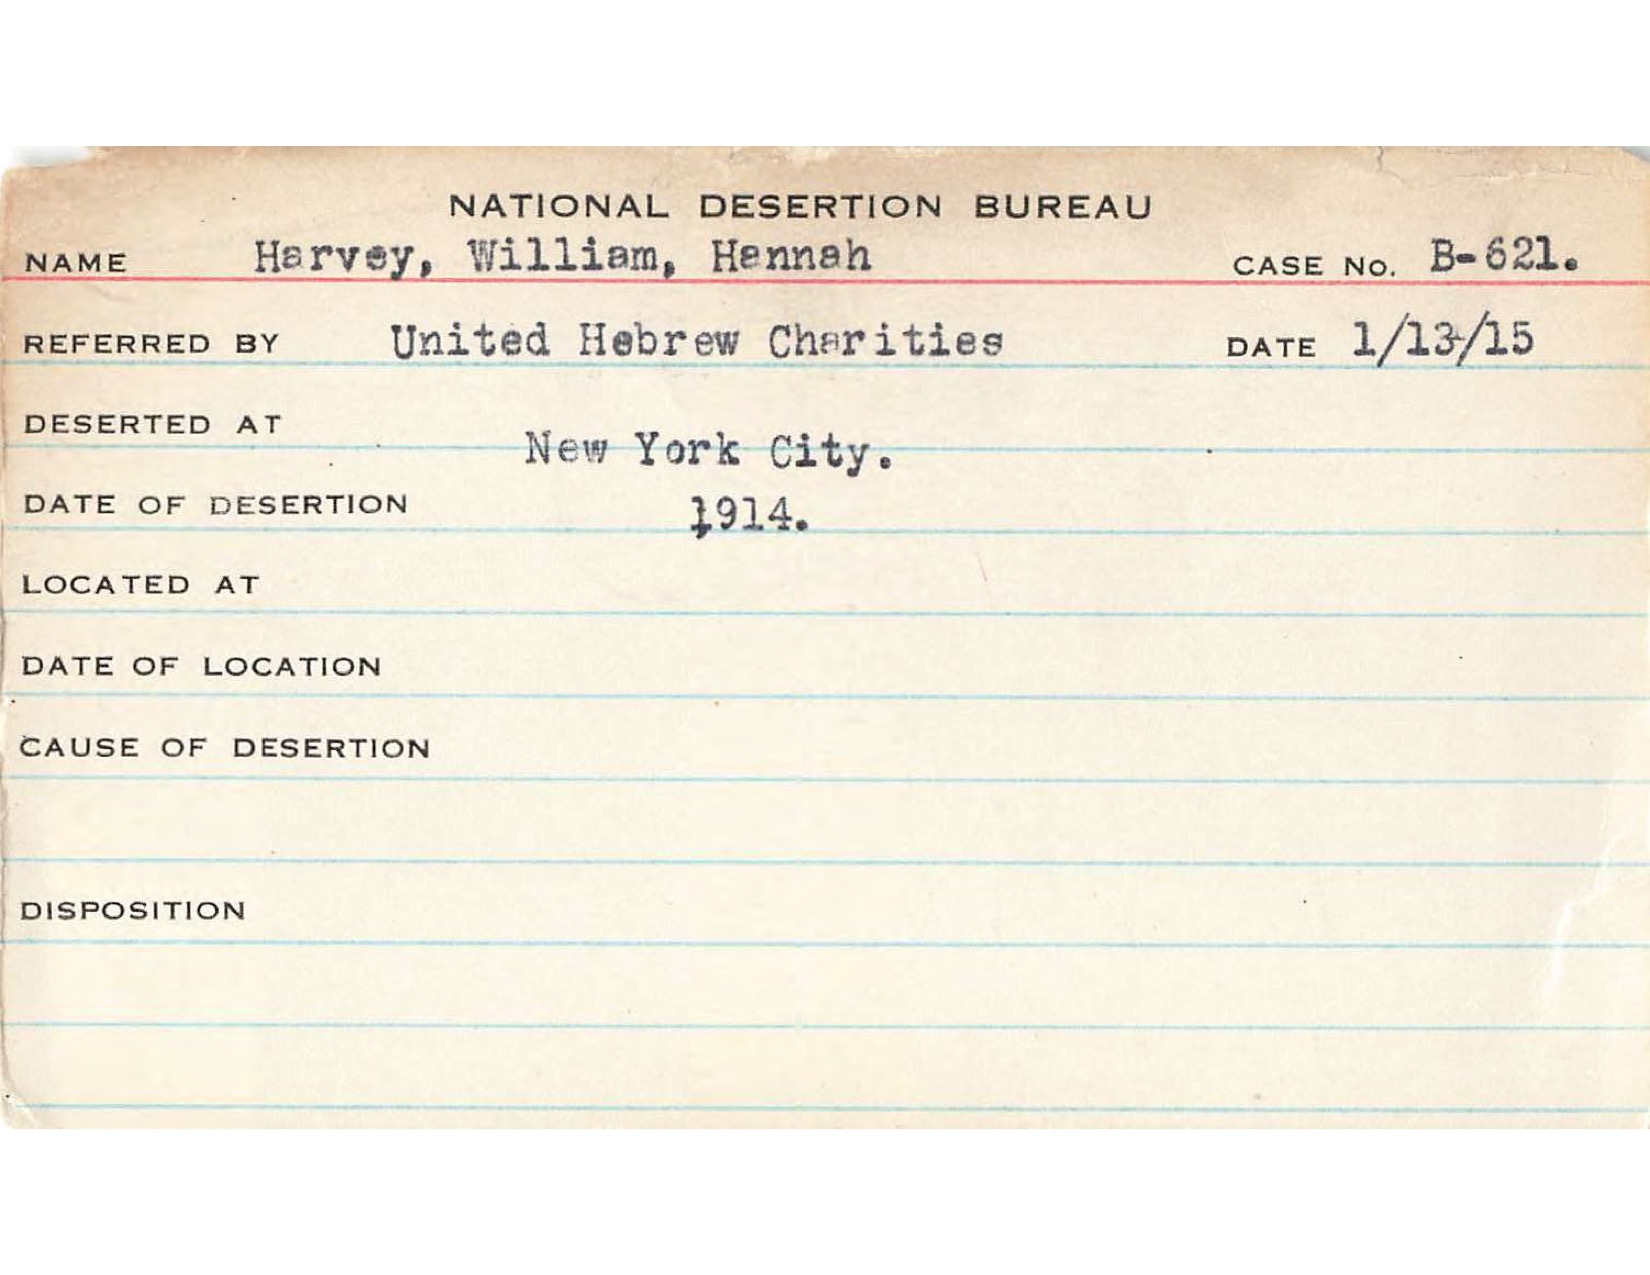 NATIONAL DESERTION BUREAU
NAME Harvey, William, Hannah CASE No. B-621.
REFERRED BY United Hebrew Charities DATE 1/13/15
DESERTED AT
New York City.
DATE OF DESERTION 1914.
LOCATED AT
DATE OF LOCATION
CAUSE OF DESERTION
DISPOSITION